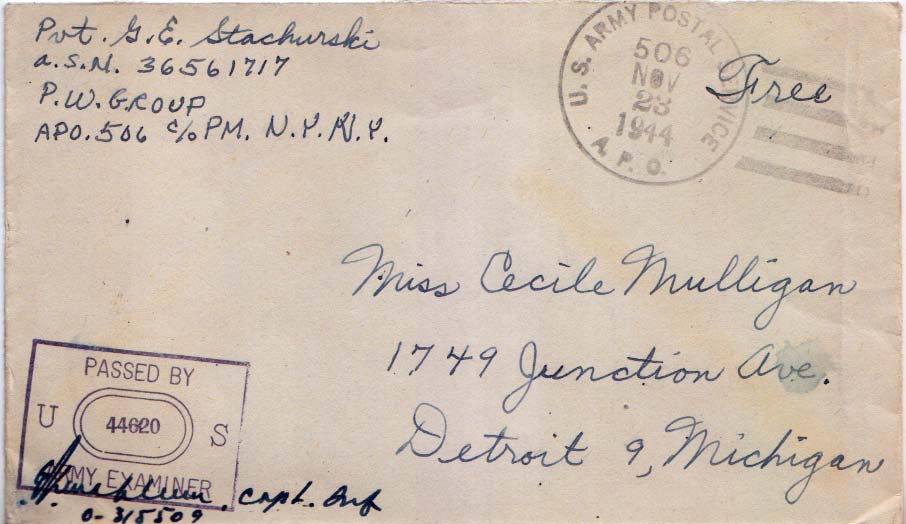 Pvt. G.E. Stachurski
a.S.N. 36561717
P.W. GROUP
APO. 506 c/o PM. N.Y. N.Y.
U.S. ARMY POSTAL SERVICE
506
NOV
23
1944
A.P.O.
Free
Miss Cecile Mulligan
1749 Junction Ave.
Detroit 9, Michigan
PASSED BY
U 44620 S
ARMY EXAMINER
Capt. Inf
0-315509